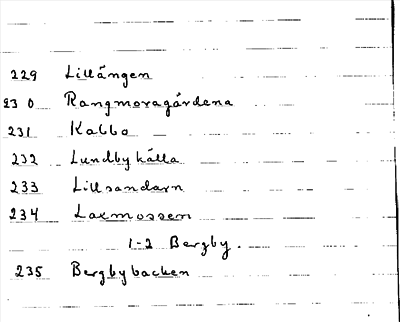 229 Lillängen
230 Rangmoragårdena
231 Kabbo
232 Lundby källa
233 Lillsandarn
234 Laxmossen
1-2 Bergby.
235 Bergbybacken